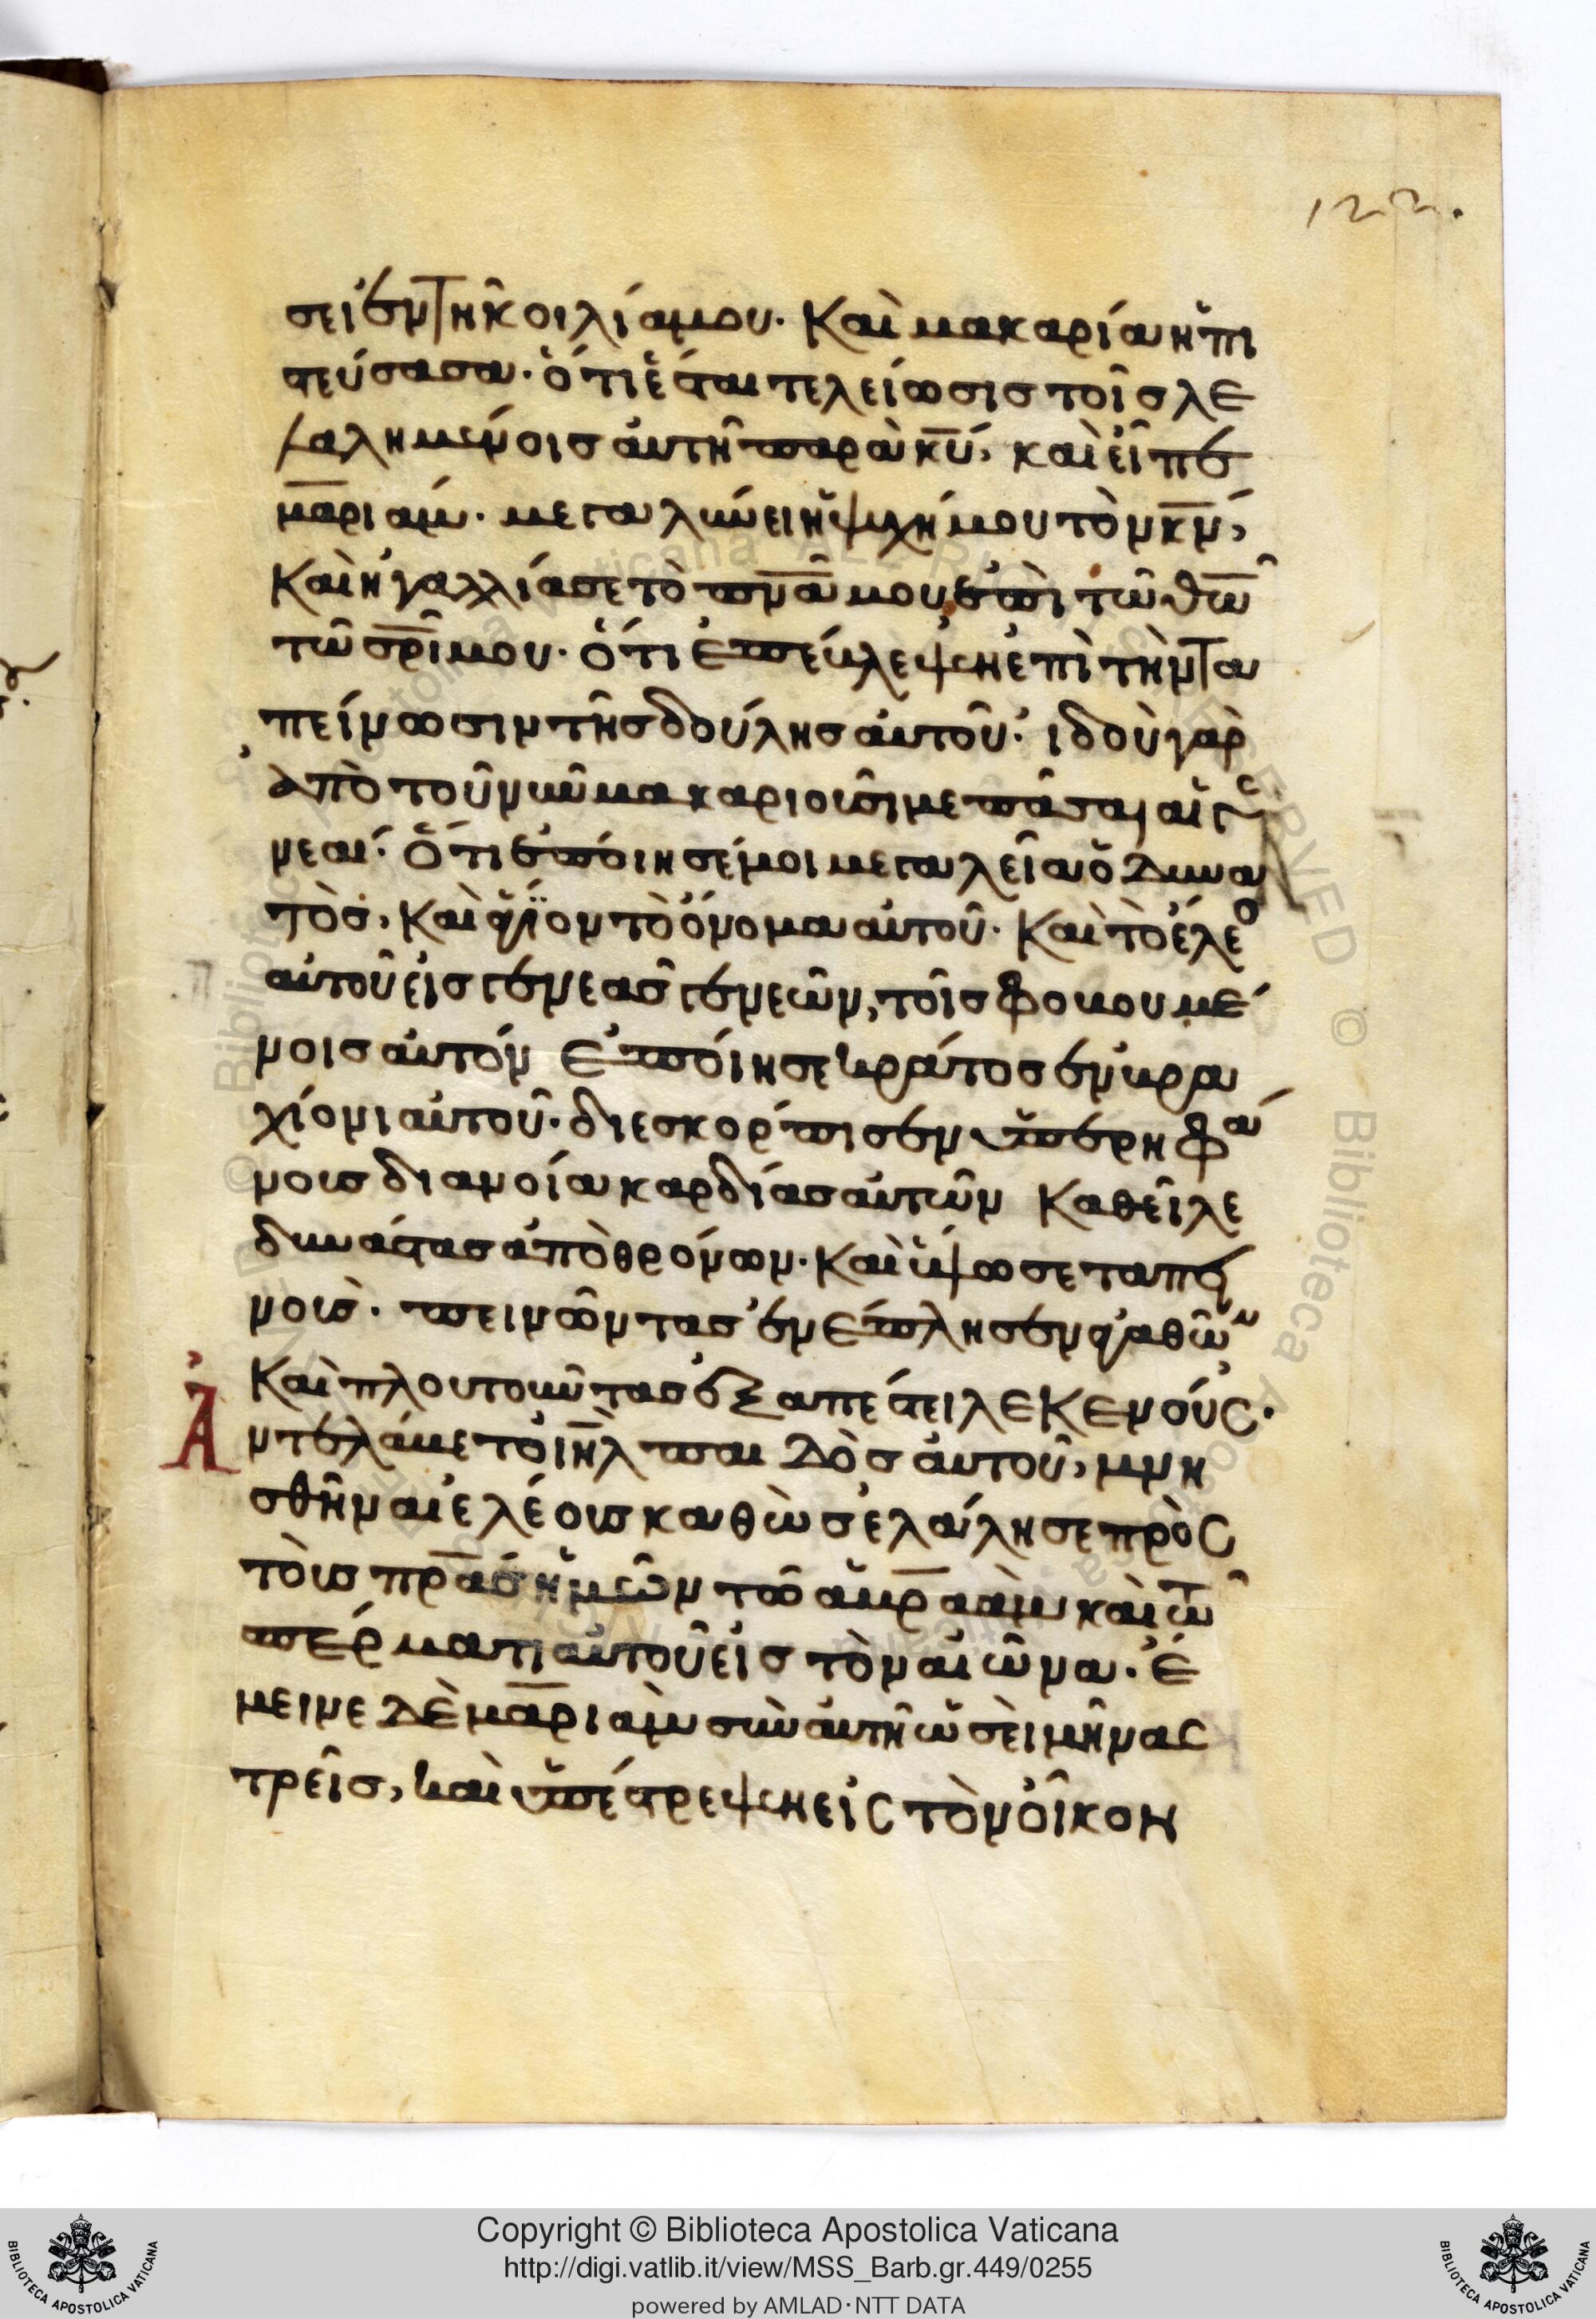 122.
σει ἐν τῆ κοιλία μου. Καὶ μακαρία ἡ πι
στεύσασα. ὅτι ἔσται τελείωσις τοῖς λε
λαλημένοις αὐτῆ παρὰ κ̅υ̅, καὶ εἶπε
μ̅α̅ριάμ. μεγαλύνει ἡ ψυχή μου τὸν κ̅ν̅,
Καὶ ἠγαλλίασε τὸ π̅ν̅α̅ μου ἐπὶ τῶ θ̅ω̅
τῶ σ̅ρ̅ι̅ μου. ὅτι ἐπέβλεψεν ἐπὶ τὴν τα
πείνωσιν τῆς δούλης αὐτοῦ. ἰδοὺ γὰρ
ἀπὸ τοῦ νῦν μακαριοῦσί με πᾶσαι αἱ γε
νεαί. Ὅτι ἐποίησέ μοι μεγαλεῖα ὁ δυνα
τὸς, Καὶ ἅγιον τὸ ὄνομα αὐτοῦ. Καὶ τὸ ἔλεο
αὐτοῦ εἰς γενεὰς γενεῶν, τοῖς φοβουμέ
νοις αὐτόν Ἐποίησε κράτος ἐν βρα
χίονι αὐτοῦ. διεσκόρπισεν ὑπερηφά
νους διανοία καρδίας αὐτῶν Καθεῖλε
δυνάστας ἀπὸ θρόνων. Καὶ ὕψωσε ταπει
νοὺς. πεινῶντας ἐνέπλησεν ἀγαθῶν
Καὶ πλουτοῦντας ἐξαπέστειλε Κενούς.
Ἀντελάβετο ἰ̅η̅λ̅ παιδὸς αὐτοῦ, μνη
σθῆναι ἐλέους καθὼς ἐλάλησε πρὸς
τοὺς π̅ρ̅α̅ς ἡμῶν τῶ ἀβρ̅αὰμ καὶ τῶ
σπέρματι αὐτοῦ εἰς τὸν αἰῶνα. Ἔ
μεινε δὲ μ̅α̅ριὰμ σὺν αὐτῆ ὡσεὶ μῆνας
τρεῖς, καὶ ὑπέστρεψεν εἰς τὸν οἶκον
Copyright © Biblioteca Apostolica Vaticana
http://digi.vatlib.it/view/MSS_Barb.gr.449/0255
powered by AMLAD·NTT DATA
BIBLIOTECA APOSTOLICA VATICANA
BIBLIOTECA APOSTOLICA VATICANA